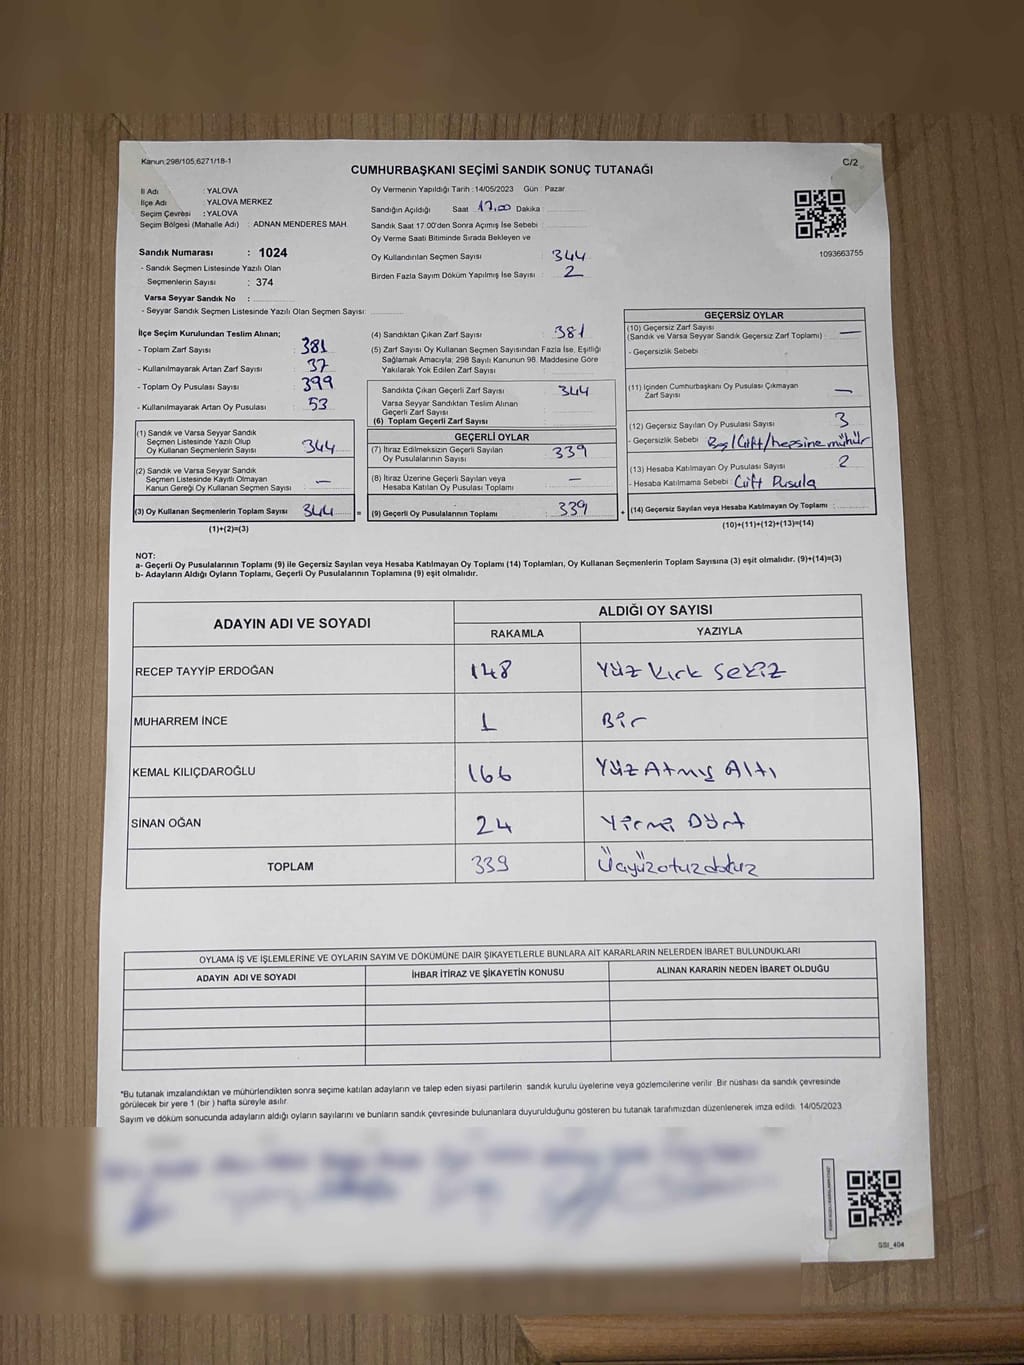 Kanun;298/105,6271/18-1
C/2
CUMHURBAŞKANI SEÇİMİ SANDIK SONUÇ TUTANAĞI
İl Adı : YALOVA
İlçe Adı : YALOVA MERKEZ
Seçim Çevresi : YALOVA
Seçim Bölgesi (Mahalle Adı) : ADNAN MENDERES MAH.
Sandık Numarası : 1024
- Sandık Seçmen Listesinde Yazılı Olan
Seçmenlerin Sayısı : 374
Varsa Seyyar Sandık No :
- Seyyar Sandık Seçmen Listesinde Yazılı Olan Seçmen Sayısı:
Oy Vermenin Yapıldığı Tarih :14/05/2023 Gün : Pazar
Sandığın Açıldığı Saat 17,00 Dakika :
Sandık Saat 17:00'den Sonra Açımış İse Sebebi :
Oy Verme Saati Bitiminde Sırada Bekleyen ve
Oy Kullandırılan Seçmen Sayısı 344
Birden Fazla Sayım Döküm Yapılmış İse Sayısı : 2
1093663755
İlçe Seçim Kurulundan Teslim Alınan;
- Toplam Zarf Sayısı 381
- Kullanılmayarak Artan Zarf Sayısı : 37
- Toplam Oy Pusulası Sayısı : 399
- Kullanılmayarak Artan Oy Pusulası : 53
(1) Sandık ve Varsa Seyyar Sandık
Seçmen Listesinde Yazılı Olup
Oy Kullanan Seçmenlerin Sayısı : 344
(2) Sandık ve Varsa Seyyar Sandık
Seçmen Listesinde Kayıtlı Olmayan
Kanun Gereği Oy Kullanan Seçmen Sayısı : —
(3) Oy Kullanan Seçmenlerin Toplam Sayısı : 344 =
(1)+(2)=(3)
(4) Sandıktan Çıkan Zarf Sayısı : 381
(5) Zarf Sayısı Oy Kullanan Seçmen Sayısından Fazla İse, Eşitliği
Sağlamak Amacıyla; 298 Sayılı Kanunun 98. Maddesine Göre
Yakılarak Yok Edilen Zarf Sayısı :
Sandıkta Çıkan Geçerli Zarf Sayısı : 344
Varsa Seyyar Sandıktan Teslim Alınan
Geçerli Zarf Sayısı :
(6) Toplam Geçerli Zarf Sayısı :
GEÇERLİ OYLAR
(7) İtiraz Edilmeksizin Geçerli Sayılan
Oy Pusulalarının Sayısı : 339
(8) İtiraz Üzerine Geçerli Sayılan veya
Hesaba Katılan Oy Pusulası Toplamı : —
(9) Geçerli Oy Pusulalarının Toplamı : 339 +
GEÇERSİZ OYLAR
(10) Geçersiz Zarf Sayısı
(Sandık ve Varsa Seyyar Sandık Geçersız Zarf Toplamı) : —
- Geçersizlik Sebebi :
(11) İçinden Cumhurbaşkanı Oy Pusulası Çıkmayan
Zarf Sayısı : —
(12) Geçersiz Sayılan Oy Pusulası Sayısı : 3
- Geçersizlik Sebebi : Boş/Çift/hepsine mühür
(13) Hesaba Katılmayan Oy Pusulası Sayısı : 2
- Hesaba Katılmama Sebebi : Çift Pusula
(14) Geçersiz Sayılan veya Hesaba Katılmayan Oy Toplamı :
(10)+(11)+(12)+(13)=(14)
NOT:
a- Geçerli Oy Pusulalarının Toplamı (9) ile Geçersiz Sayılan veya Hesaba Katılmayan Oy Toplamı (14) Toplamları, Oy Kullanan Seçmenlerin Toplam Sayısına (3) eşit olmalıdır. (9)+(14)=(3)
b- Adayların Aldığı Oyların Toplamı, Geçerli Oy Pusulalarının Toplamına (9) eşit olmalıdır.
ADAYIN ADI VE SOYADI
ALDIĞI OY SAYISI
RAKAMLA YAZIYLA
RECEP TAYYİP ERDOĞAN 148 Yüz Kırk Sekiz
MUHARREM İNCE 1 Bir
KEMAL KILIÇDAROĞLU 166 Yüz Atmış Altı
SİNAN OĞAN 24 Yirmi Dört
TOPLAM 339 Üçyüzotuzdokuz
OYLAMA İŞ VE İŞLEMLERİNE VE OYLARIN SAYIM VE DÖKÜMÜNE DAİR ŞİKAYETLERLE BUNLARA AİT KARARLARIN NELERDEN İBARET BULUNDUKLARI
ADAYIN ADI VE SOYADI
İHBAR İTİRAZ VE ŞİKAYETİN KONUSU
ALINAN KARARIN NEDEN İBARET OLDUĞU
*Bu tutanak imzalandıktan ve mühürlendikten sonra seçime katılan adayların ve talep eden siyasi partilerin sandık kurulu üyelerine veya gözlemcilerine verilir. Bir nüshası da sandık çevresinde
görülecek bir yere 1 (bir ) hafta süreyle asılır.
Sayım ve döküm sonucunda adayların aldığı oyların sayılarını ve bunların sandık çevresinde bulunanlara duyurulduğunu gösteren bu tutanak tarafımızdan düzenlenerek imza edildi. 14/05/2023
GSI_404